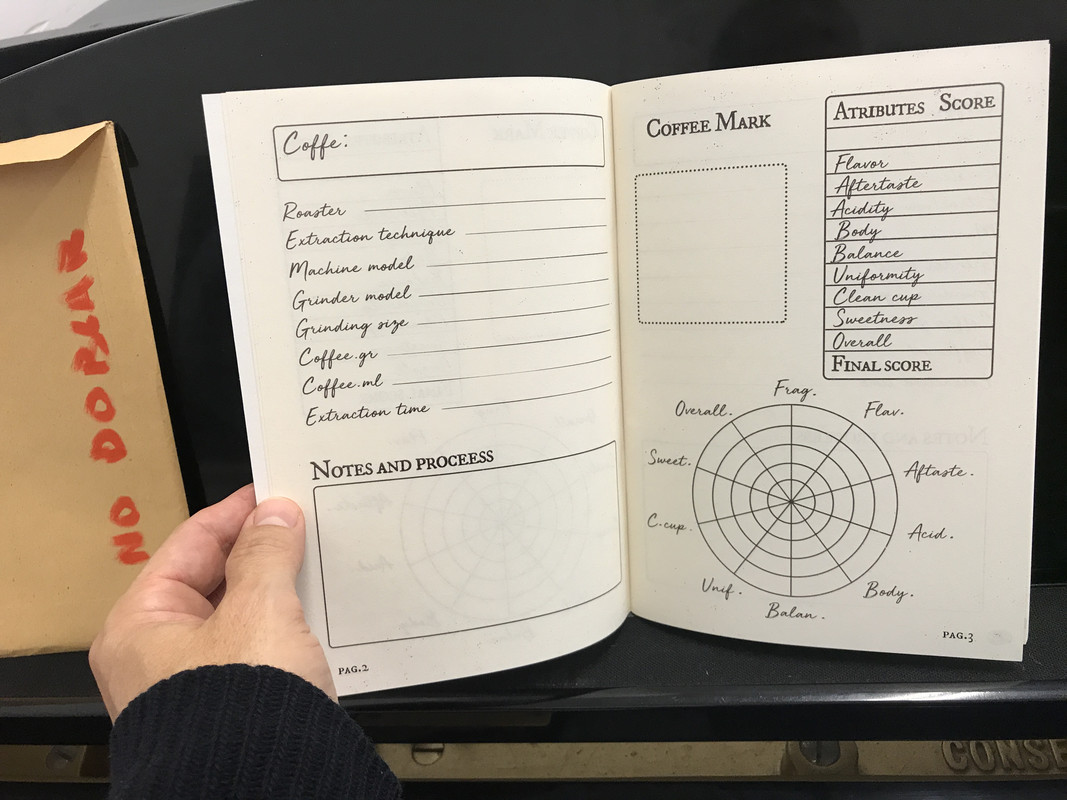 NO DOBLAR
Coffe:
Roaster
Extraction technique
Machine model
Grinder model
Grinding size
Coffee.gr
Coffee.ml
Extraction time
NOTES AND PROCEESS
PAG.2
COFFEE MARK
ATRIBUTES SCORE
Flavor
Aftertaste
Acidity
Body
Balance
Uniformity
Clean cup
Sweetness
Overall
FINAL SCORE
Frag.
Flav.
Aftaste.
Acid.
Body.
Balan.
Unif.
C.cup.
Sweet.
Overall.
PAG.3